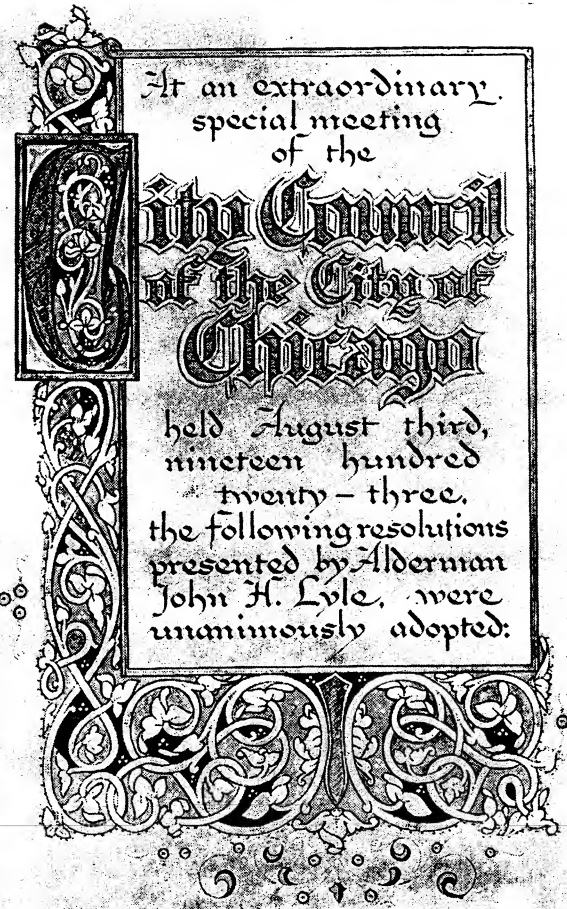 At an extraordinary
special meeting
of the
City Council
of the City of
Chicago
held August third,
nineteen hundred
twenty – three,
the following resolutions
presented by Alderman
John H. Lyle, were
unanimously adopted: